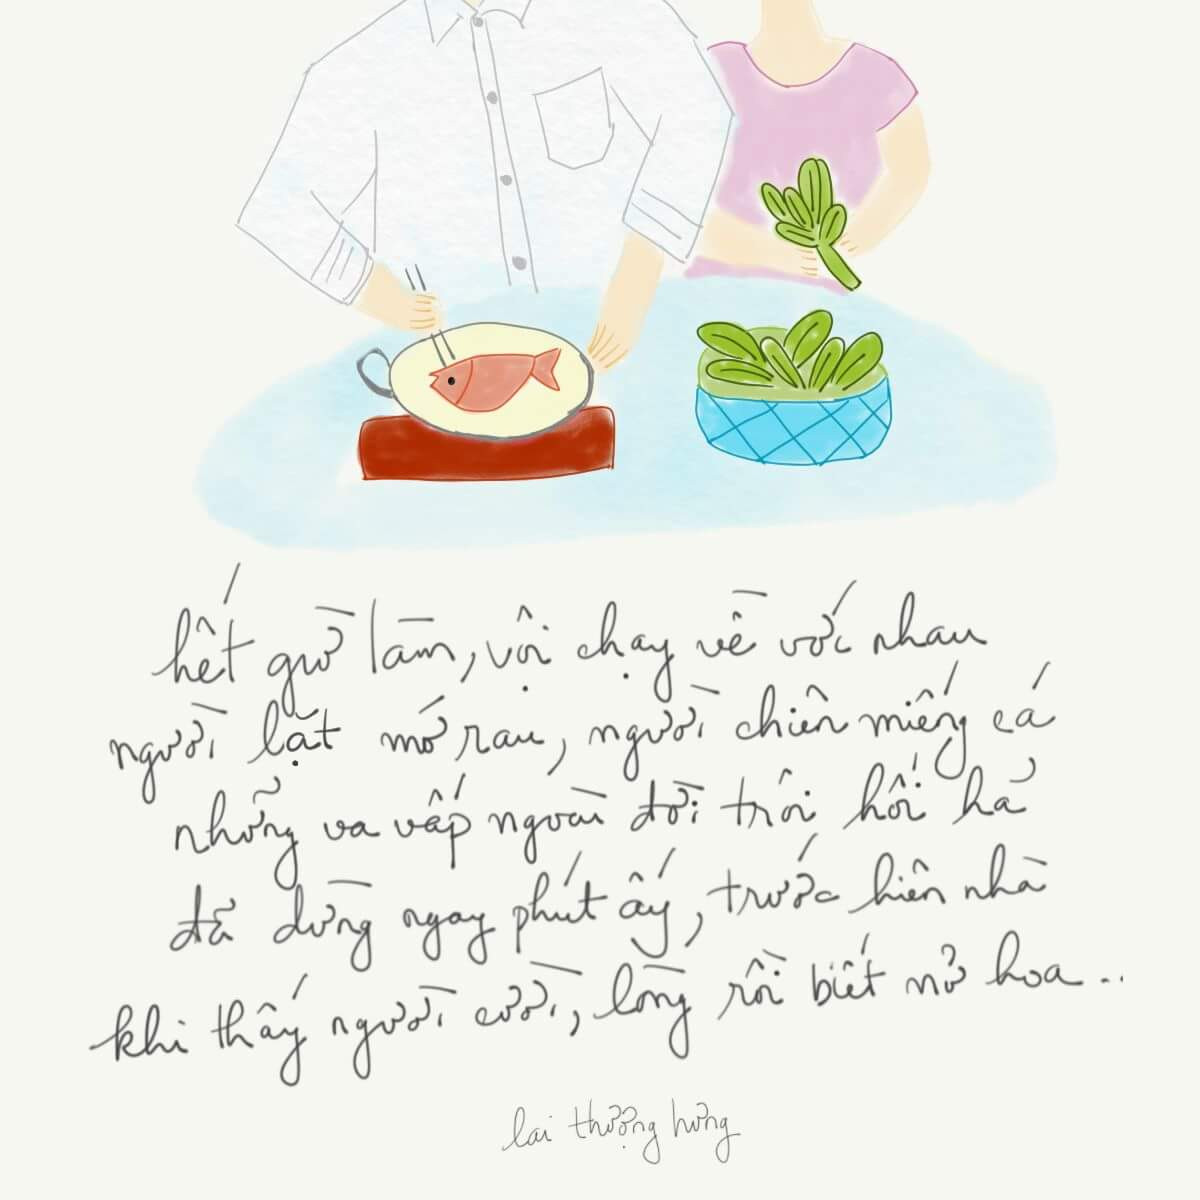 hết giờ làm, vội chạy về với nhau
người lặt mớ rau, người chiên miếng cá
những va vấp ngoài đời trôi hối hả
đã dừng ngay phút ấy, trước hiên nhà
khi thấy người cười, lòng rồi biết nở hoa...
lai thượng hưng